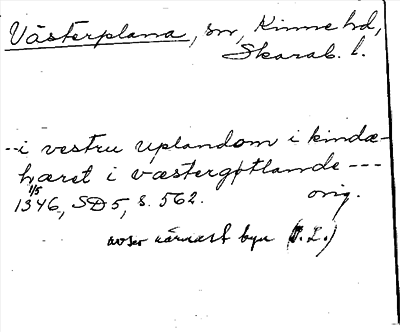 Västerplana, sn, Kinne hd,
Skarab. l.
--i vestru uplandom i kindæ-
hæret i væstergøtlande ---
1/5
1346, SD 5, s. 562. orig.
avser närmast byn (I. L.)